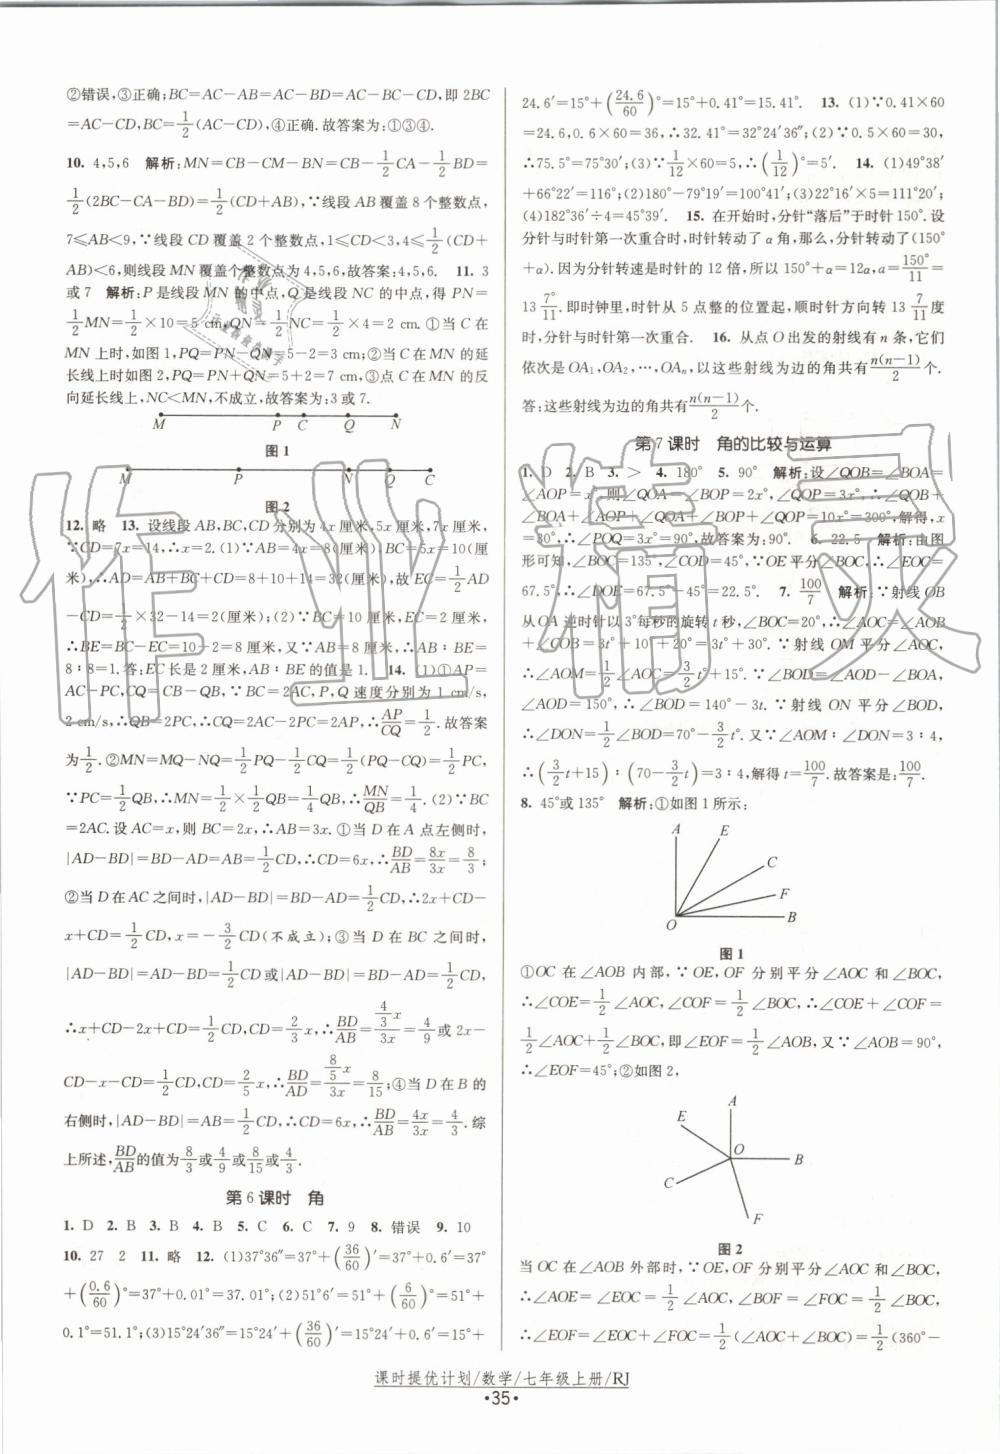 ②错误,③正确;BC=AC-AB=AC-BD=AC-BC-CD,即 2BC
=AC-CD,BC=1/2(AC-CD),④正确.故答案为:①③④.
10. 4,5,6 解析:MN=CB-CM-BN=CB-1/2CA-1/2BD=
1/2(2BC-CA-BD)=1/2(CD+AB),∵线段 AB 覆盖 8 个整数点,
7≤AB<9,∵线段 CD 覆盖 2 个整数点,1≤CD<3,4≤1/2(CD+
AB)<6,则线段 MN 覆盖个整数点为 4,5,6,故答案:4,5,6. 11. 3
或 7 解析:P 是线段 MN 的中点,Q 是线段 NC 的中点,得 PN=
1/2MN=1/2×10=5 cm,QN=1/2NC=1/2×4=2 cm.①当 C 在
MN 上时,如图 1,PQ=PN-QN=5-2=3 cm;②当 C 在 MN 的延
长线上时如图 2,PQ=PN+QN=5+2=7 cm,③点 C 在 MN 的反
向延长线上,NC<MN,不成立,故答案为:3 或 7.
M P C Q N
图 1
M P N Q C
图 2
12. 略 13. 设线段 AB,BC,CD 分别为 4x 厘米,5x 厘米,7x 厘米,
∵CD=7x=14,∴x=2.(1)∵AB=4x=8(厘米),BC=5x=10(厘
米),∴AD=AB+BC+CD=8+10+14=32(厘米),故 EC=1/2AD
-CD=1/2×32-14=2(厘米);(2)∵BC=10 厘米,EC=2 厘米,
∴BE=BC-EC=10-2=8 厘米,又∵AB=8 厘米,∴AB∶BE=
8∶8=1.答:EC 长是 2 厘米,AB∶BE 的值是 1. 14. (1)①AP=
AC-PC,CQ=CB-QB,∵BC=2AC,P,Q 速度分别为 1 cm/s,
2 cm/s,∴QB=2PC,∴CQ=2AC-2PC=2AP,∴AP/CQ=1/2.故答案
为1/2.②MN=MQ-NQ=1/2PQ-1/2CQ=1/2(PQ-CQ)=1/2PC,
∵PC=1/2QB,∴MN=1/2×1/2QB=1/4QB,∴MN/QB=1/4.(2)∵BC
=2AC.设 AC=x,则 BC=2x,∴AB=3x.①当 D 在 A 点左侧时,
|AD-BD|=BD-AD=AB=1/2CD,∴CD=6x,∴BD/AB=8x/3x=8/3;
②当 D 在 AC 之间时,|AD-BD|=BD-AD=1/2CD,∴2x+CD-
x+CD=1/2CD,x=-3/2CD(不成立);③当 D 在 BC 之间时,
|AD-BD|=AD-BD=1/2CD或|AD-BD|=BD-AD=1/2CD,
∴x+CD-2x+CD=1/2CD,CD=2/3x,∴BD/AB=(4/3x)/3x=4/9或 2x-
CD-x-CD=1/2CD,CD=2/5x,∴BD/AB=(8/5x)/3x=8/15;④当 D 在 B 的
右侧时,|AD-BD|=AB=1/2CD,∴CD=6x,∴BD/AB=4x/3x=4/3.综
上所述,BD/AB的值为8/3或4/9或8/15或4/3.
第 6 课时 角
1. D 2. B 3. B 4. B 5. C 6. C 7. 9 8. 错误 9. 10
10. 27 2 11. 略 12. (1)37°36″=37°+(36/60)′=37°+0.6′=37°
+(0.6/60)°=37°+0.01°=37.01°;(2)51°6′=51°+(6/60)°=51°+
0.1°=51.1°;(3)15°24′36″=15°24′+(36/60)′=15°24′+0.6′=15°+
24.6′=15°+(24.6/60)°=15°+0.41°=15.41°. 13. (1)∵0.41×60
=24.6,0.6×60=36,∴32.41°=32°24′36″;(2)∵0.5×60=30,
∴75.5°=75°30′;(3)∵1/12×60=5,∴(1/12)°=5′. 14. (1)49°38′
+66°22′=116°;(2)180°-79°19′=100°41′;(3)22°16′×5=111°20′;
(4)182°36′÷4=45°39′. 15. 在开始时,分针“落后”于时针 150°.设
分针与时针第一次重合时,时针转动了 α 角,那么,分针转动了(150°
+α).因为分针转速是时针的 12 倍,所以 150°+α=12α,α=150°/11=
13 7°/11.即时钟里,时针从 5 点整的位置起,顺时针方向转 13 7/11 度
时,分针与时针第一次重合. 16. 从点 O 出发的射线有 n 条,它们
依次是 OA₁,OA₂,…,OAₙ,以这些射线为边的角共有n(n-1)/2个.
答:这些射线为边的角共有n(n-1)/2个.
第 7 课时 角的比较与运算
1. D 2. B 3. > 4. 180° 5. 90° 解析:设∠QOB=∠BOA=
∠AOP=x°,则∠QOA=∠BOP=2x°,∠QOP=3x°,∴∠QOB+
∠BOA+∠AOP+∠QOA+∠BOP+∠QOP=10x°=300°,解得,x
=30°,∴∠POQ=3x=90°.故答案为:90°. 6. 22.5 解析:由图
形可知,∠BOC=135°,∠COD=45°,∵OE 平分∠BOC,∴∠EOC=
67.5°,∴∠DOE=67.5°-45°=22.5°. 7. 100/7 解析:∵射线 OB
从 OA 逆时针以 3°每秒的旋转 t 秒,∠BOC=20°,∴∠AOC=∠AOB
+∠COB=3t°+10°+20°=3t°+30°.∵射线 OM 平分∠AOC,
∴∠AOM=1/2∠AOC=3/2t°+15°.∵∠BOD=∠AOD-∠BOA,
∠AOD=150°,∴∠BOD=140°-3t.∵射线 ON 平分∠BOD,
∴∠DON=1/2∠BOD=70°-3/2t°.又∵∠AOM∶∠DON=3∶4,
∴(3/2t+15)∶(70-3/2t)=3∶4,解得 t=100/7.故答案是:100/7.
8. 45°或 135° 解析:①如图 1 所示:
A E C F B O
图 1
①OC 在∠AOB 内部,∵OE,OF 分别平分∠AOC 和∠BOC,
∴∠COE=1/2∠AOC,∠COF=1/2∠BOC,∴∠COE+∠COF=
1/2∠AOC+1/2∠BOC,即∠EOF=1/2∠AOB,又∵∠AOB=90°,
∴∠EOF=45°;②如图 2,
A E O B C F
图 2
当 OC 在∠AOB 外部时,∵OE,OF 分别平分∠AOC 和∠BOC,
∴∠AOE=∠EOC=1/2∠AOC,∠BOF=∠FOC=1/2∠BOC,
∴∠EOF=∠EOC+∠FOC=1/2(∠AOC+∠BOC)=1/2(360°-
课时提优计划/数学/七年级上册/RJ
·35·
作业精灵